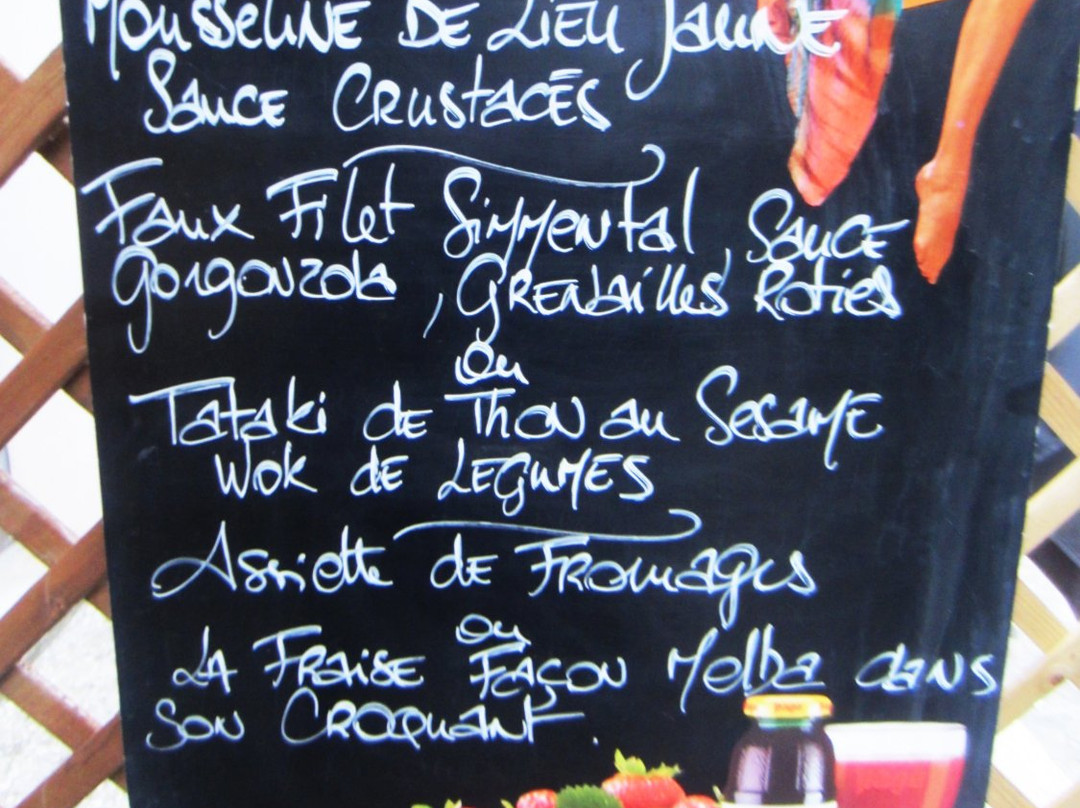 Mousseline de Lieu Jaune
Sauce Crustacés
Faux Filet Simmental, Sauce
Gorgonzola, Grenailles Roties
ou
Tataki de Thon au Sesame
Wok de Legumes
Assiette de Fromages
ou
La Fraise Façon Melba dans
Son Croquant.